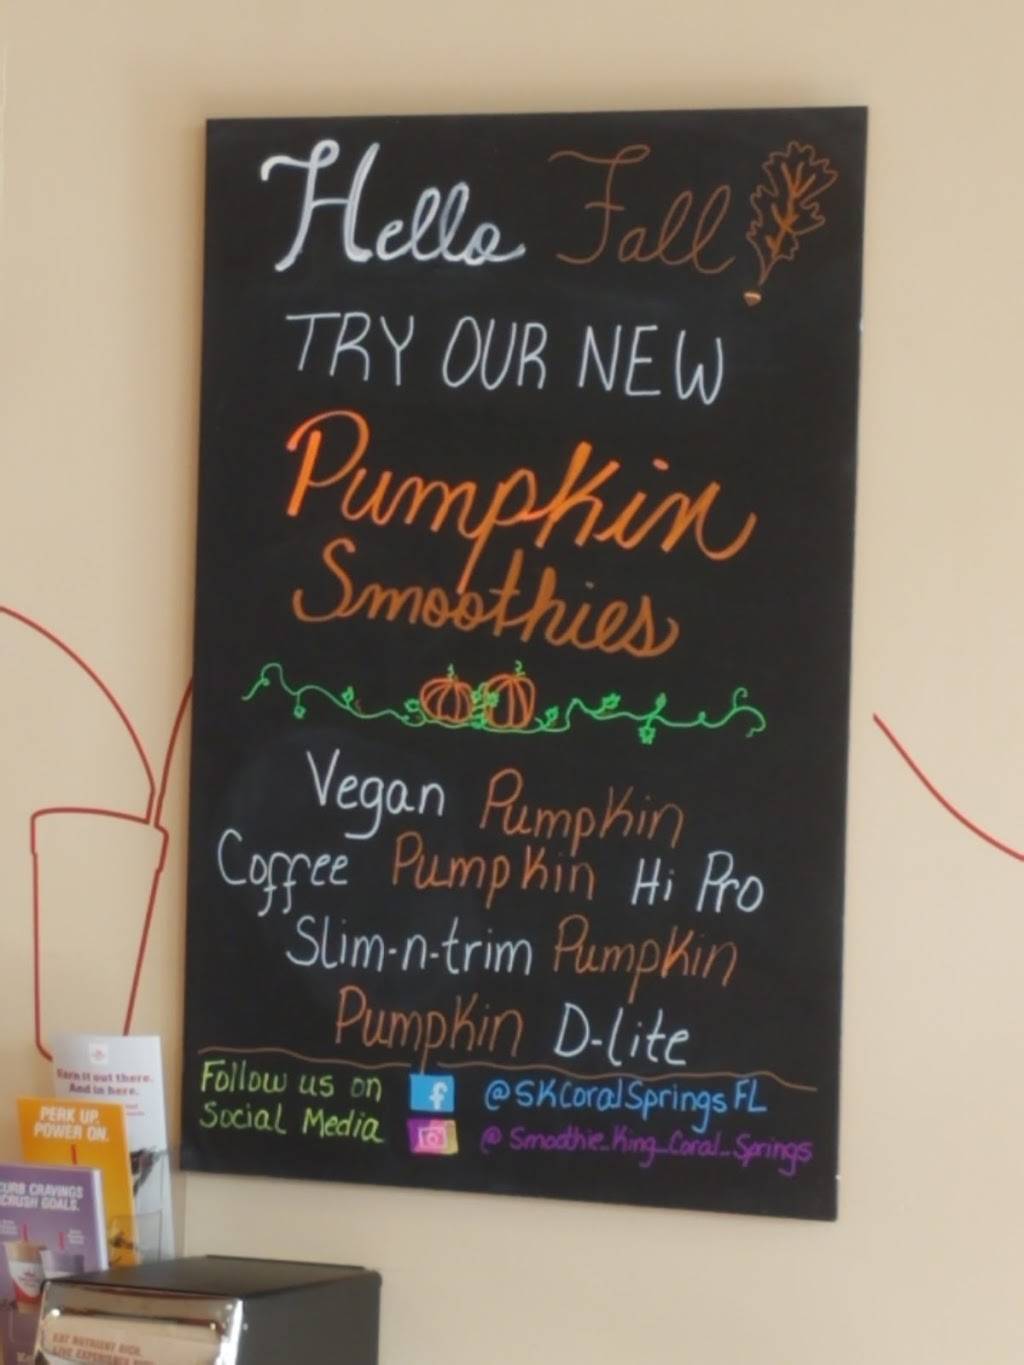 Hello Fall
TRY OUR NEW
Pumpkin
Smoothies
Vegan Pumpkin
Coffee Pumpkin Hi Pro
Slim-n-trim Pumpkin
Pumpkin D-lite
Follow us on
Social Media
f @SKCoralSpringsFL
@Smoothie_King_Coral_Springs
Earn it out there.
And in here.
PERK UP.
POWER ON.
CURB CRAVINGS
CRUSH GOALS.
EAT NUTRIENT RICH.